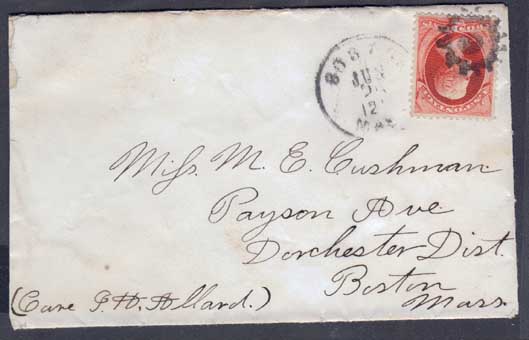 BOSTON
JUN
12
MASS
Miss. M. E. Cushman
Payson Ave
Dorchester Dist.
Boston
Mass.
(Care J. H. Allard.)